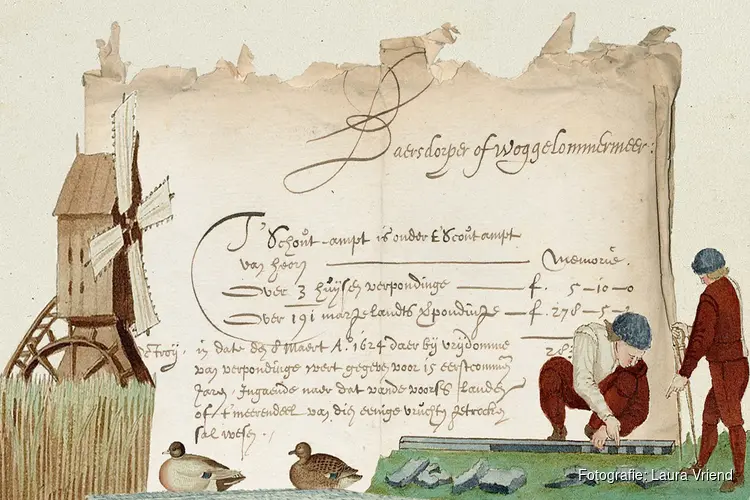 Baersdorper of Woggelommermeer:
T'Schout-ampt is onder t Scout ampt
van heer Memorie.
Over 3 huijsen verpondinge f. 5-10-0
Over 191 f. 278-5-
in date de 8 Maert A.° 1624 daer bij vrijdomme
van verpondinge wert gegeven voor 15 eerstcomm
Jaren. Ingaende naer dat vande voors. landen
of t'meerendeel van dien eenige vruchten getrocken
sal wesen.
Fotografie: Laura Vriend